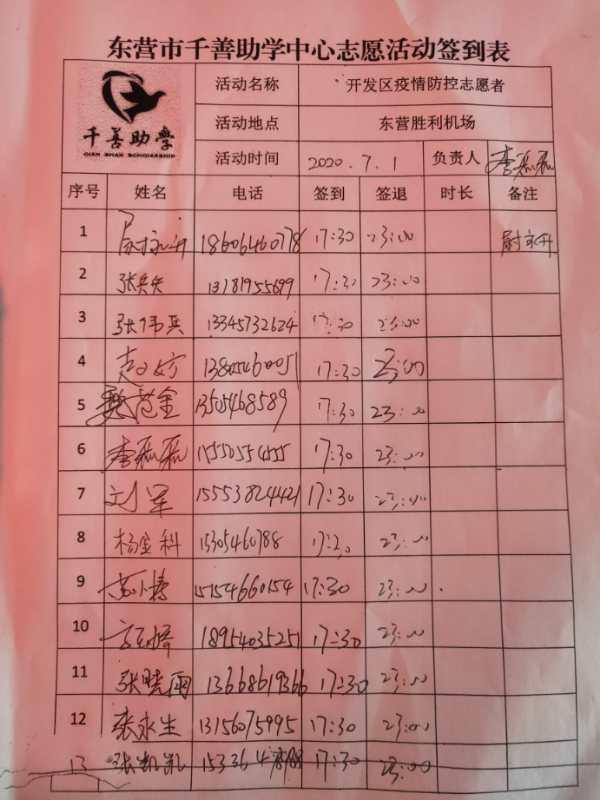 东营市千善助学中心志愿活动签到表
千善助学
QIAN SHAN SCHOLARSHIP
活动名称 开发区疫情防控志愿者
活动地点 东营胜利机场
活动时间 2020.7.1 负责人 李磊磊
序号 姓名 电话 签到 签退 时长 备注
1 尉永升 18606460778 17:30 23:00 尉永升
2 张兵兵 13181955699 17:30 23:00
3 张伟兵 13345732624 17:30 23:00
4 17:30 23:00
5 13505468589 17:30 23:00
6 李磊磊 15550554555 17:30 23:00
7 刘军 15553824421 17:30 23:00
8 杨金科 15305460788 17:30 23:00
9 15154660154 17:30 23:00
10 18954035251 17:30 23:00
11 张晓雨 13668619366 17:30 23:00
12 张永生 13156075995 17:30 23:00
13 张凯凯 17:30 23:00